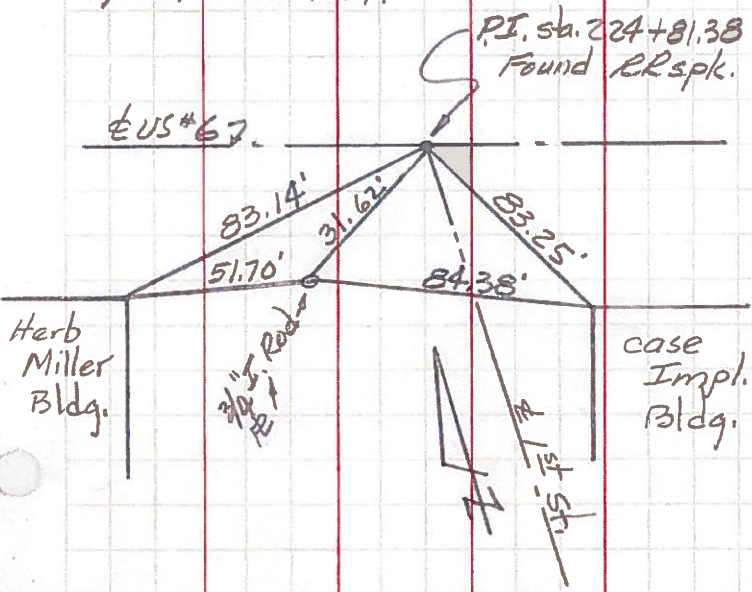 P.I. sta. 224+81.38
Found RR spk.
℄ US #67
83.14'
31.62'
83.25'
51.70'
84.38'
Herb
Miller
Bldg.
3/4" I. Rod
case
Impl.
Bldg.
℄ 1st St.
N